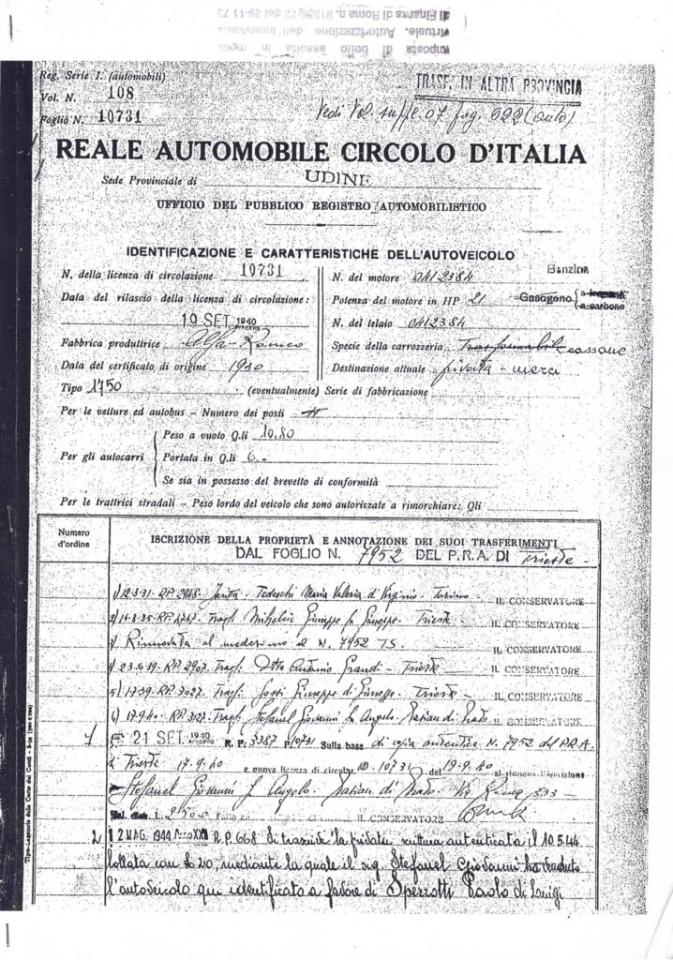 imposta di bollo assolta in modo
virtuale. Autorizzazione dell'Intendenza
di Finanza di Roma n.
Reg. Serie I. (automobili)
Vol. N. 108
Foglio N. 10731
TRASF. IN ALTRA PROVINCIA
Vedi Vol. 07 fog. 622 (auto)
REALE AUTOMOBILE CIRCOLO D'ITALIA
Sede Provinciale di UDINE
UFFICIO DEL PUBBLICO REGISTRO AUTOMOBILISTICO
IDENTIFICAZIONE E CARATTERISTICHE DELL'AUTOVEICOLO
N. della licenza di circolazione 10731
Data del rilascio della licenza di circolazione:
19 SET. 1940
Fabbrica produttrice Alfa-Romeo
Data del certificato di origine 1930
Tipo 1750 (eventualmente) Serie di fabbricazione
N. del motore 0412384
Benzina
Potenza del motore in HP 21 Gasogeno a carbone
N. del telaio 0412384
Specie della carrozzeria Trasformabile cassone
Destinazione attuale privata - merci
Per le vetture ed autobus - Numero dei posti
Per gli autocarri
Peso a vuoto Q.li 10,80
Portata in Q.li 6.-
Se sia in possesso del brevetto di conformità
Per le trattrici stradali - Peso lordo del veicolo che sono autorizzate a rimorchiare: Qli
Numero d'ordine
ISCRIZIONE DELLA PROPRIETÀ E ANNOTAZIONE DEI SUOI TRASFERIMENTI
DAL FOGLIO N. 7952 DEL P.R.A. DI Trieste
1) 12.3.31 - R.P. Tedeschi Maria Valeria d. Virginio - Torino - IL CONSERVATORE
Giuseppe fu Giuseppe - Trieste - IL CONSERVATORE
al medesimo al N. 7952 TS. IL CONSERVATORE
R.P. 2907. Trasf. Grandi - Trieste IL CONSERVATORE
R.P. 3027. Trasf. Giuseppe d. Giuseppe - Trieste - IL CONSERVATORE
6) 17.9.40 - R.P. 3127. Trasf. Stefanel Giovanni fu Angelo. IL CONSERVATORE
1 21 SET. 1940 R.P. 3387 10731 Sulla base di copia autentica N. 7952 del P.R.A.
di Trieste 17.9.40 e nuova licenza di circolaz. 10731 del 19.9.40
Stefanel Giovanni f. Angelo
2500 IL CONSERVATORE
2 12 MAG. 1944 R.P. 668 privata autenticata il 10.5.44
bollata con £ 20, mediante la quale il sig. Stefanel Giovanni ha venduto
l'autoveicolo qui identificato a favore di Sperrotti Paolo di Luigi